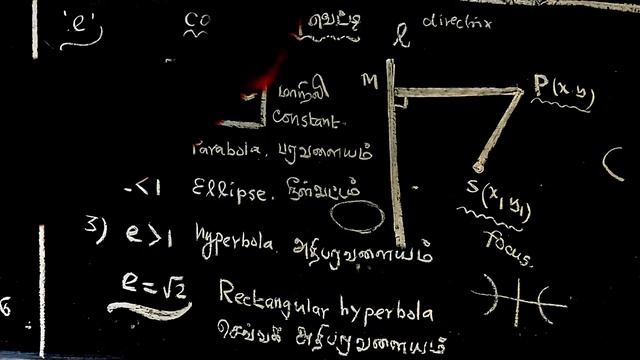 'e'
l directrix
M
P(x,y)
மாறிலி
constant.
Parabola. பரவளையம்
<1 Ellipse. நீள்வட்டம்
S(x₁y₁)
focus.
3) e>1 hyperbola. அதிபரவளையம்
e=√2 Rectangular hyperbola
செவ்வக அதிபரவளையம்